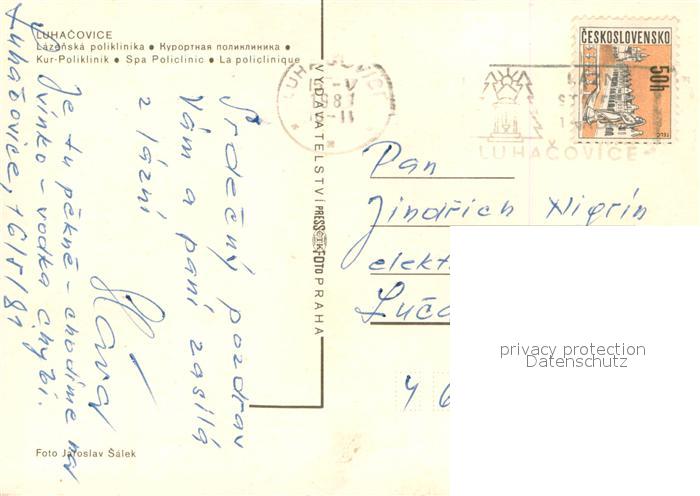 LUHAČOVICE
Lázeňská poliklinika • Курортная поликлиника •
Kur-Poliklinik • Spa Policlinic • La policlinique
Srdečný pozdrav
Vám a paní zasílá
z lázní
Je tu pěkně - chodíme na
vínko - vodka chybí.
Luhačovice, 16/5/81
Foto Jaroslav Šálek
VYDAVATELSTVÍ PRESSFOTO PRAHA
LUHAČOVICE
ČESKOSLOVENSKO
50h
TELČ
LUHAČOVICE
Pan
Jindřich Nigrín
elekt
Luča
privacy protection
Datenschutz